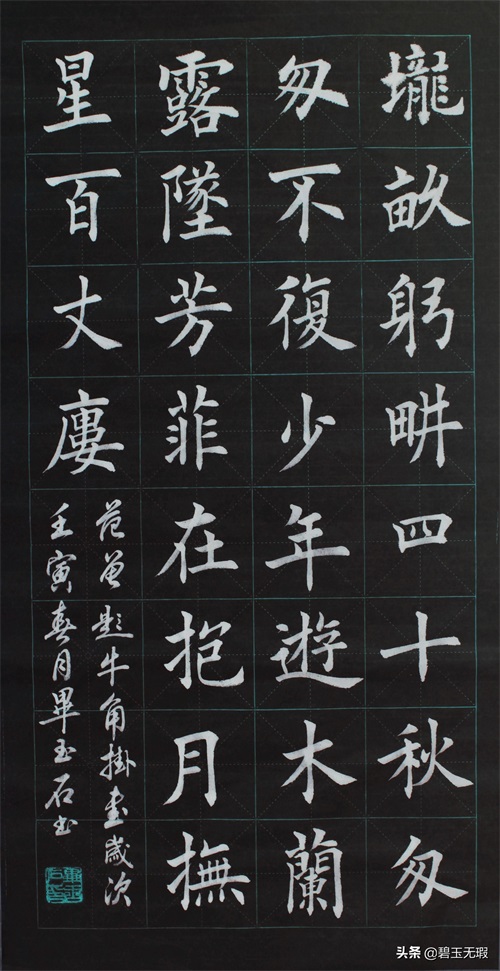 壠畝躬畊四十秋匆
匆不復少年遊木蘭
露墜芳菲在抱月撫
星百丈廔
范曾題牛角掛書歲次
壬寅春月畢玉石書
头条 @碧玉无瑕